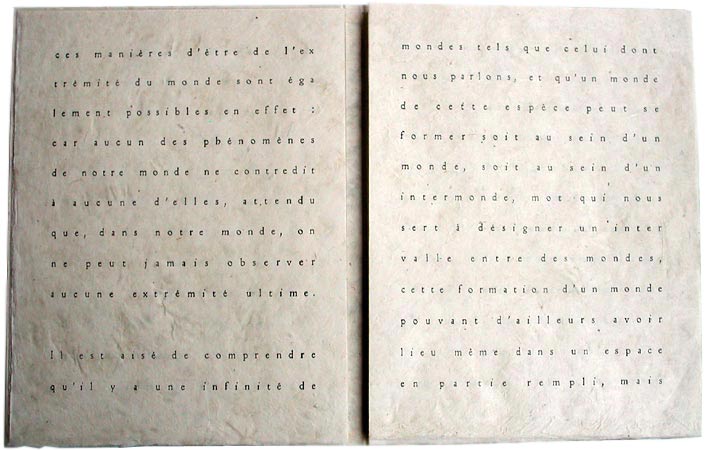 ces manières d'être de l'ex
trémité du monde sont éga
lement possibles en effet :
car aucun des phénomènes
de notre monde ne contredit
à aucune d'elles, attendu
que, dans notre monde, on
ne peut jamais observer
aucune extrémité ultime.
Il est aisé de comprendre
qu'il y a une infinité de
mondes tels que celui dont
nous parlons, et qu'un monde
de cette espèce peut se
former soit au sein d'un
monde, soit au sein d'un
intermonde, mot qui nous
sert à désigner un inter
valle entre des mondes,
cette formation d'un monde
pouvant d'ailleurs avoir
lieu même dans un espace
en partie rempli, mais